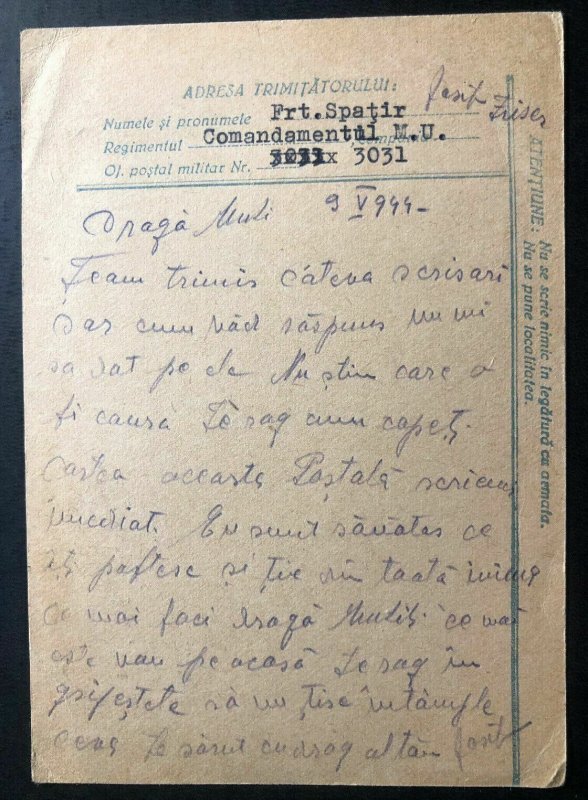 ADRESA TRIMIȚĂTORULUI:
Iosif
Numele și pronumele Frt.Spațir
Regimentul Comandamentul M.U.
Of. poștal militar Nr. 3031
ATENȚIUNE: Nu se scrie nimic în legătură cu armata.
Nu se pune localitatea.
Dragă Muti 9 V 944-
Team trimis câteva scrisari
dar cum văd răspuns nu mi
sa dat pe ele Nu știu care o
fi causa Te rog cum capeți
cartea aceasta Poștală scriemi
imediat. Eu sunt sănătos ce
îți poftesc și ție din toată inima
Ce mai faci dragă Mutiți ce mai
este nou pe acasă Te rog în
grijește te să nu ți se întâmple
ceva Te sărut cu drag al tău Iosif